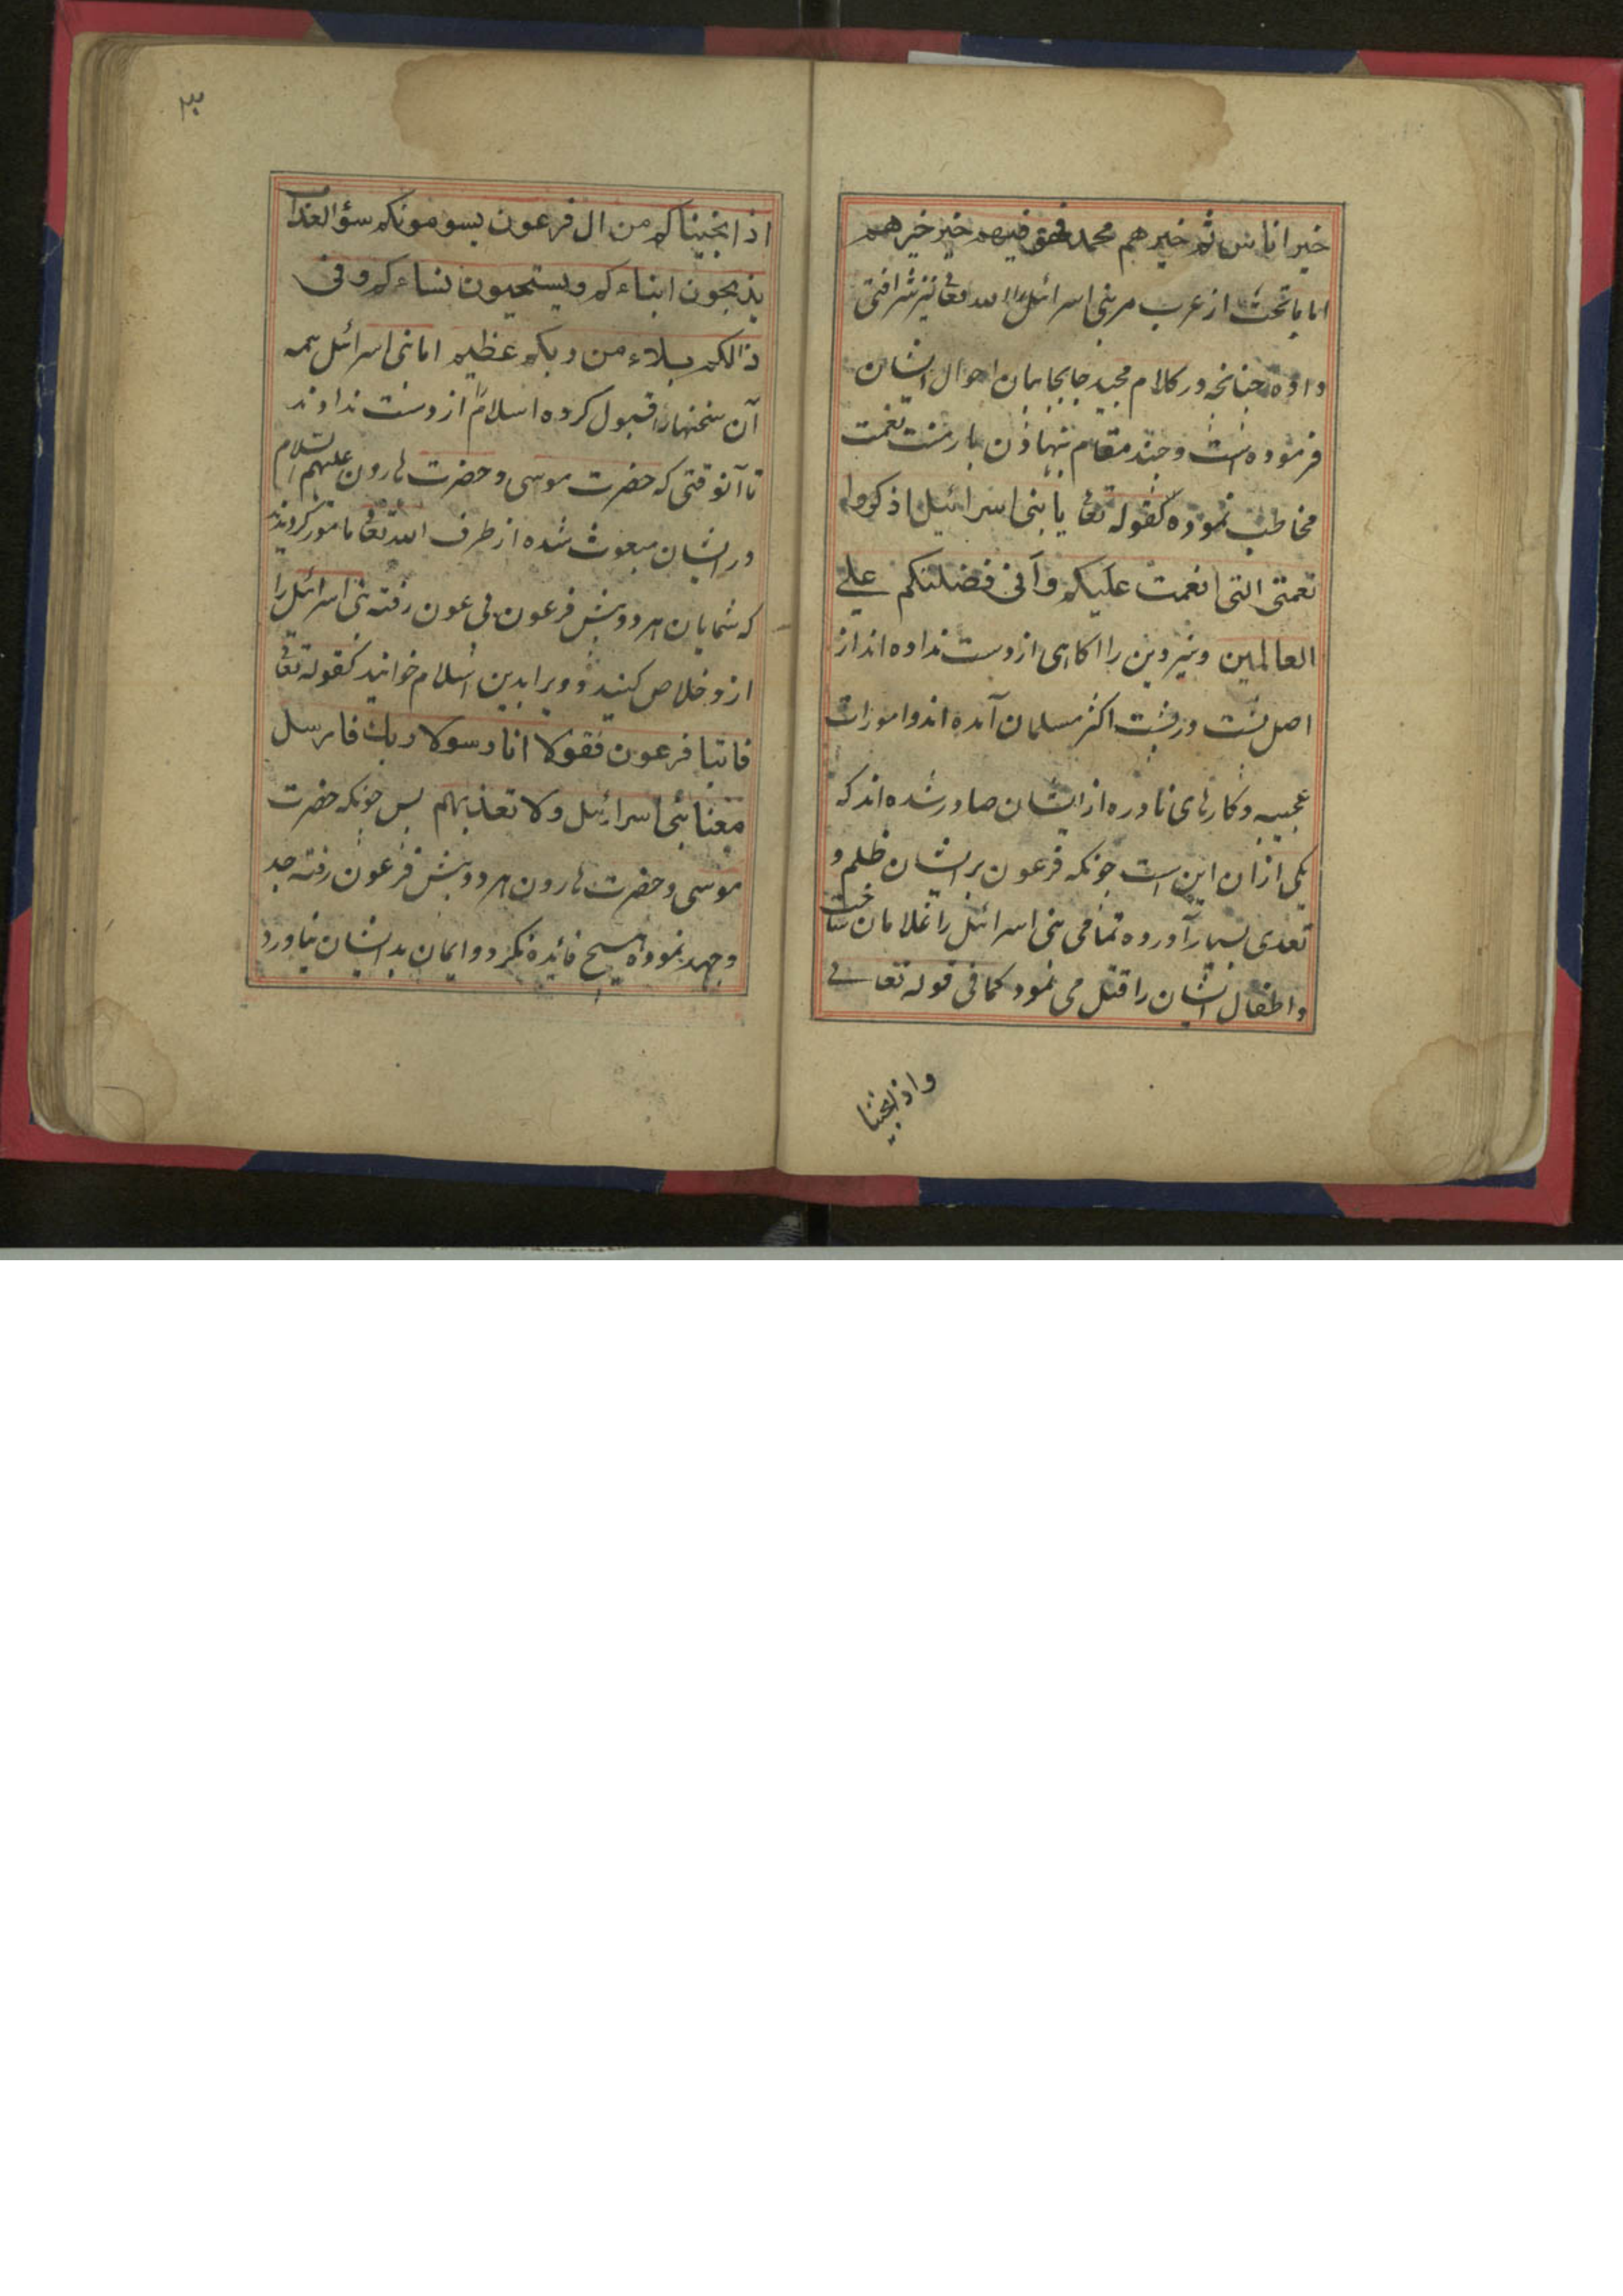 خیر اناس ثم خیرهم محمد فهو فیهم خیر خیرهم
اما ما تحت از عرب مر بنی اسرائیل را الله تعالی نیز شرافتی
داده چنانچه در کلام مجید جابجا بیان احوال ایشان
فرموده است و چند مقام بنهادن بار منت نعمت
مخاطب نموده کقوله تعالی یا بنی اسرائیل اذکروا
نعمتی التی انعمت علیکم و آنی فضلتکم علی
العالمین و نیز دین را اکاهی از دست نداده اند از
اصل پشت در پشت اکثر مسلمان آمده اند و امورات
عجیبه و کارهای نادره از ایشان صادر شده اند که
یکی از ان این است چونکه فرعون بر ایشان ظلم و
تعدی بسیار آورده تمامی بنی اسرائیل را غلامان ساخت
و اطفال ایشان را قتل می نمود کما فی قوله تعالی
و اذ انجینا
۳
اذ انجیناکم من ال فرعون یسومونکم سؤ العذاب
یذبحون ابناءکم و یستحیون نساءکم و فی
ذالکم بلاء من ربکم عظیم اما بنی اسرائل همه
آن سختیها را قبول کرده اسلام از دست ندادند
تا آنوقتی که حضرت موسی و حضرت هارون علیهم السلام
در ایشان مبعوث شده از طرف الله تعالی مامور کردیدند
که شمایان هر دو پیش فرعون بی عون رفته بنی اسرائل را
ازو خلاص کنید و ویرا بدین اسلام خوانید کقوله تعالی
فاتیا فرعون فقولا انا رسولا ربک فارسل
معنا بنی اسرائل ولا تعذبهم پس چونکه حضرت
موسی و حضرت هارون هر دو پیش فرعون رفته جد
و جهد نموده هیچ فائده نکرد و ایمان بدایشان نیاورد